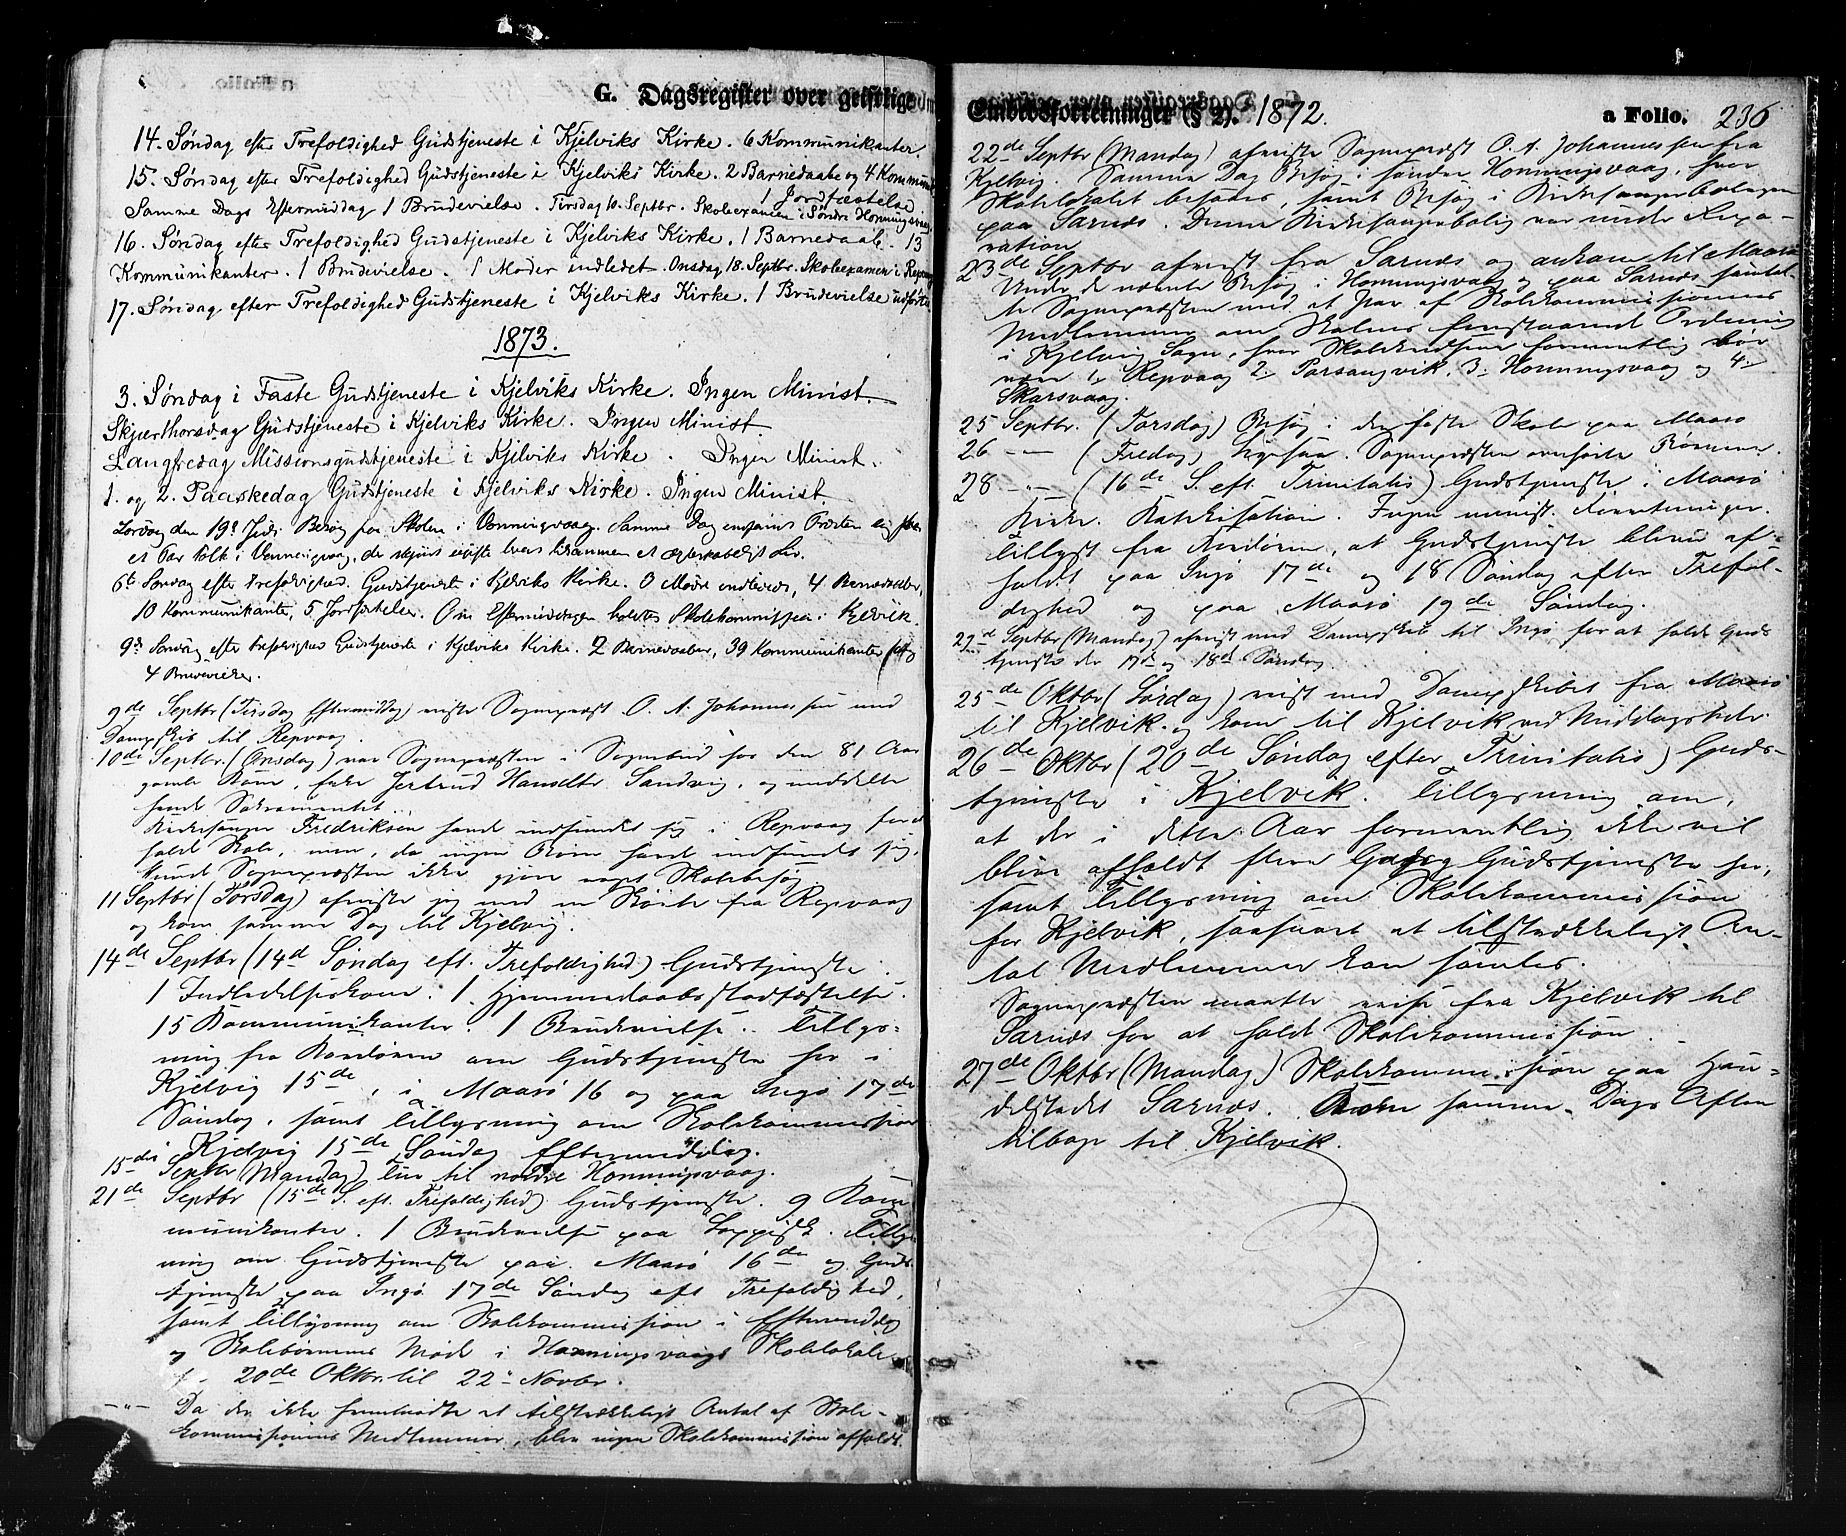 G. Dagsregister over geistlige
14. Søndag efter Trefoldighed Gudstjeneste i Kjelviks Kirke. 6 Kommunikanter.
15. Søndag efter Trefoldighed Gudstjeneste i Kjelviks Kirke. 2 Barnedaabe og 4 Kommuni
1 Jordfæstelse
Samme Dags Eftermiddag 1 Brudevielse. Tirsdag 10. Septbr. Skoleexamen i Søndre Honningsvaag
16. Søndag efter Trefoldighed Gudstjeneste i Kjelviks Kirke. 1 Barnedaab. 13
Kommunikanter. 1 Brudevielse. 1 Moder indledet. Onsdag 18. Septbr. Skoleexamen i Repvaag
17. Søndag efter Trefoldighed Gudstjeneste i Kjelviks Kirke. 1 Brudevielse udført.
1873.
3. Søndag i Faste Gudstjeneste i Kjelviks Kirke. Ingen Minist.
Skjærthorsdag Gudstjeneste i Kjelviks Kirke. Ingen Minist.
Langfredag Missionsgudstjeneste i Kjelviks Kirke. Ingen Minist.
1. og 2. Paaskedag Gudstjeneste i Kjelviks Kirke. Ingen Minist.
Lørdag den 19de Juli Besøg paa Skolen i Honningsvaag. Samme Dag Præsten
et Par Folk i Honningsvaag, der
6te Søndag efter Trefoldighed. Gudstjeneste i Kjelviks Kirke. 0 Mødre indledede, 4 Barnedaaber,
10 Kommunikanter, 5 Jordfæstelser. Om Eftermiddagen holdtes Skolekommission i Kjelvik.
9de Søndag efter Trefoldighed Gudstjeneste i Kjelviks Kirke. 2 Barnedaaber, 39 Kommunikanter og
4 Brudevielser.
9de Septbr (Tirsdag Eftermiddag) reiste Sognepræst O. A. Johannessen med
Dampskib til Repvaag.
10de Septbr. (Onsdag) var Sognepræsten i Sognebud for den 81 Aar
gamle Kone, Enke Jertrud Hansdtr Sandvig, og meddelte
hende Sakramentet.
Kirkesanger Fredriksen havde indfundet sig i Repvaag for at
holde Skole, men, da ingen Børn havde indfundet sig,
kunde Sognepræsten ikke gjøre noget Skolebesøg.
11 Septbr (Torsdag) afreiste jeg med en Skøite fra Repvaag
og kom samme Dag til Kjelvig.
14de Septbr (14d Søndag eft. Trefoldighed) Gudstjeneste.
1 Indledelseskone. 1 Hjemmedaabsstadfæstelse.
15 Kommunikanter. 1 Brudevielse. Tillys-
ning fra Kordøren om Gudstjeneste her i
Kjelvig 15de, i Maasø 16 og paa Ingø 17de
Søndag, samt tillysning om Skolekommission
i Kjelvig 15de Søndag Eftermiddag.
15de Septbr (Mandag) til nordre Honningsvaag.
21de Septbr (15de S. eft. Trefoldighed) Gudstjeneste. 9 Kom
munikanter. 1 Brudevielse paa Lappisk. Tillys
ning om Gudstjeneste paa Maasø 16de og Guds
tjeneste paa Ingø 17de Søndag eft Trefoldighed,
samt tillysning om Skolekommission i Eftermiddag
og Skolebørnenes Møde i Honningsvaags Skolelokale
20de Oktbr. til 22 Novbr.
-"- Da der ikke fremmødte et tilstrækkeligt Antal af Skole-
kommissionens Medlemmer, blev ingen Skolekommission afholdt.
Embedsforretninger (§ 2). 1872. a Folio. 236
22de Septbr (Mandag) afreiste Sognepræst O. A. Johannessen fra
Kjelvig. Samme Dag Besøg i søndre Honningsvaag, hvor
Skolelokalet besaaes, samt Besøg i Kirkesangerboligen
paa Sarnæs. Denne Kirkesangerbolig var under Repa-
ration
23de Septbr afreist fra Sarnæs og ankom til Maasø
Under de nævnte Besøg i Honningsvaag og paa Sarnæs samtal-
te Sognepræsten med et Par af Skolekommissionens
Medlemmer om Skolens Ordning
i Kjelvig Sogn, hvor Skolekredsene formentlig bør
være 1. Repvaag 2. Porsangvik. 3. Honningsvaag og 4.
Skarsvaag.
25 Septbr. (Torsdag) Besøg i den faste Skole paa Maasø
26 -"- (Fredag) Ligesaa. Sognepræsten overhørte Børnene.
28 -"- (16de S. eft. Trinitatis) Gudstjeneste i Maasø
Kirke. Katekisation. Ingen minist. Forretninger.
Tillyst fra Kordøren, at Gudstjeneste bliver af-
holdt paa Ingø 17de og 18 Søndag efter Trefol-
dighed og paa Maasø 19de Søndag.
29de Septbr (Mandag) afreist med Dampskib til Ingø for at holde Guds
tjeneste der 17d og 18d Søndag.
25de Oktbr (Lørdag) reist med Dampskibet fra Maasø
til Kjelvik og kom til Kjelvik ved Middagstider.
26de Oktbr (20de Søndag efter Trinitatis) Guds-
tjeneste i Kjelvik. Tillysning om,
at der i dette Aar formentlig ikke vil
blive afholdt flere Gudstjeneste her,
samt Tillysning om Skolekommission
for Kjelvik, saasnart et tilstrækkeligt An-
tal Medlemmer kan samles.
Sognepræsten maatte reise fra Kjelvik til
Sarnæs for at holde Skolekommission.
27de Oktbr (Mandag) Skolekommission paa Han-
delstedet Sarnæs. Reiste samme Dags Aften
tilbage til Kjelvik.